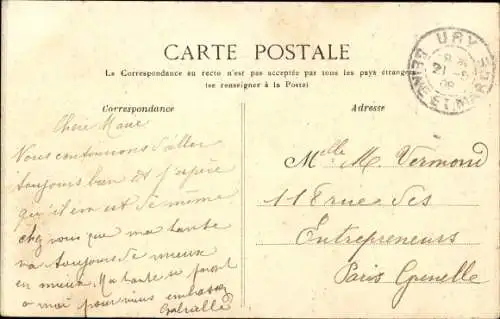 CARTE POSTALE
La Correspondance au recto n'est pas acceptée par tous les pays étrangers
(se renseigner à la Poste)
Correspondance
Adresse
URY
SEINE ET MARNE
Chère Marie
Nous continuons d'aller
toujours bien et j'espère
qu'il en est de même
chez vous que ma tante
va toujours de mieux
en mieux. Ma tante se joint
a moi pour vous embrasser
Gabrielle
Melle M. Vermond
118 rue des
Entrepreneurs
Paris Grenelle